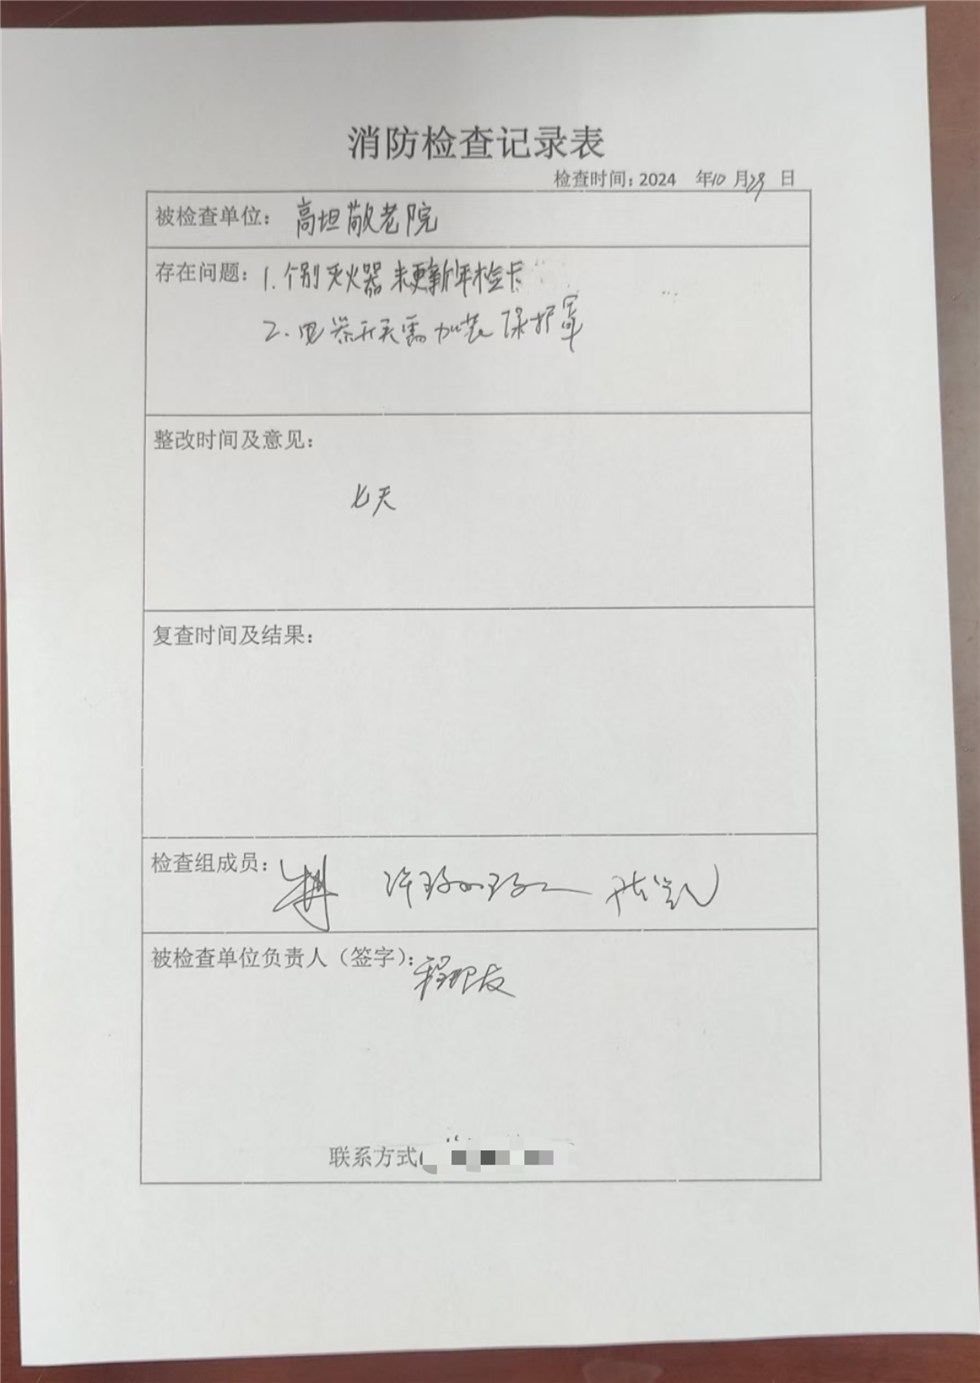 消防检查记录表
检查时间：2024 年10月29日
被检查单位：高坦敬老院
存在问题：1.个别灭火器未更新年检卡
2.电器开关需加装保护罩
整改时间及意见：
七天
复查时间及结果：
检查组成员：
被检查单位负责人（签字）：
联系方式